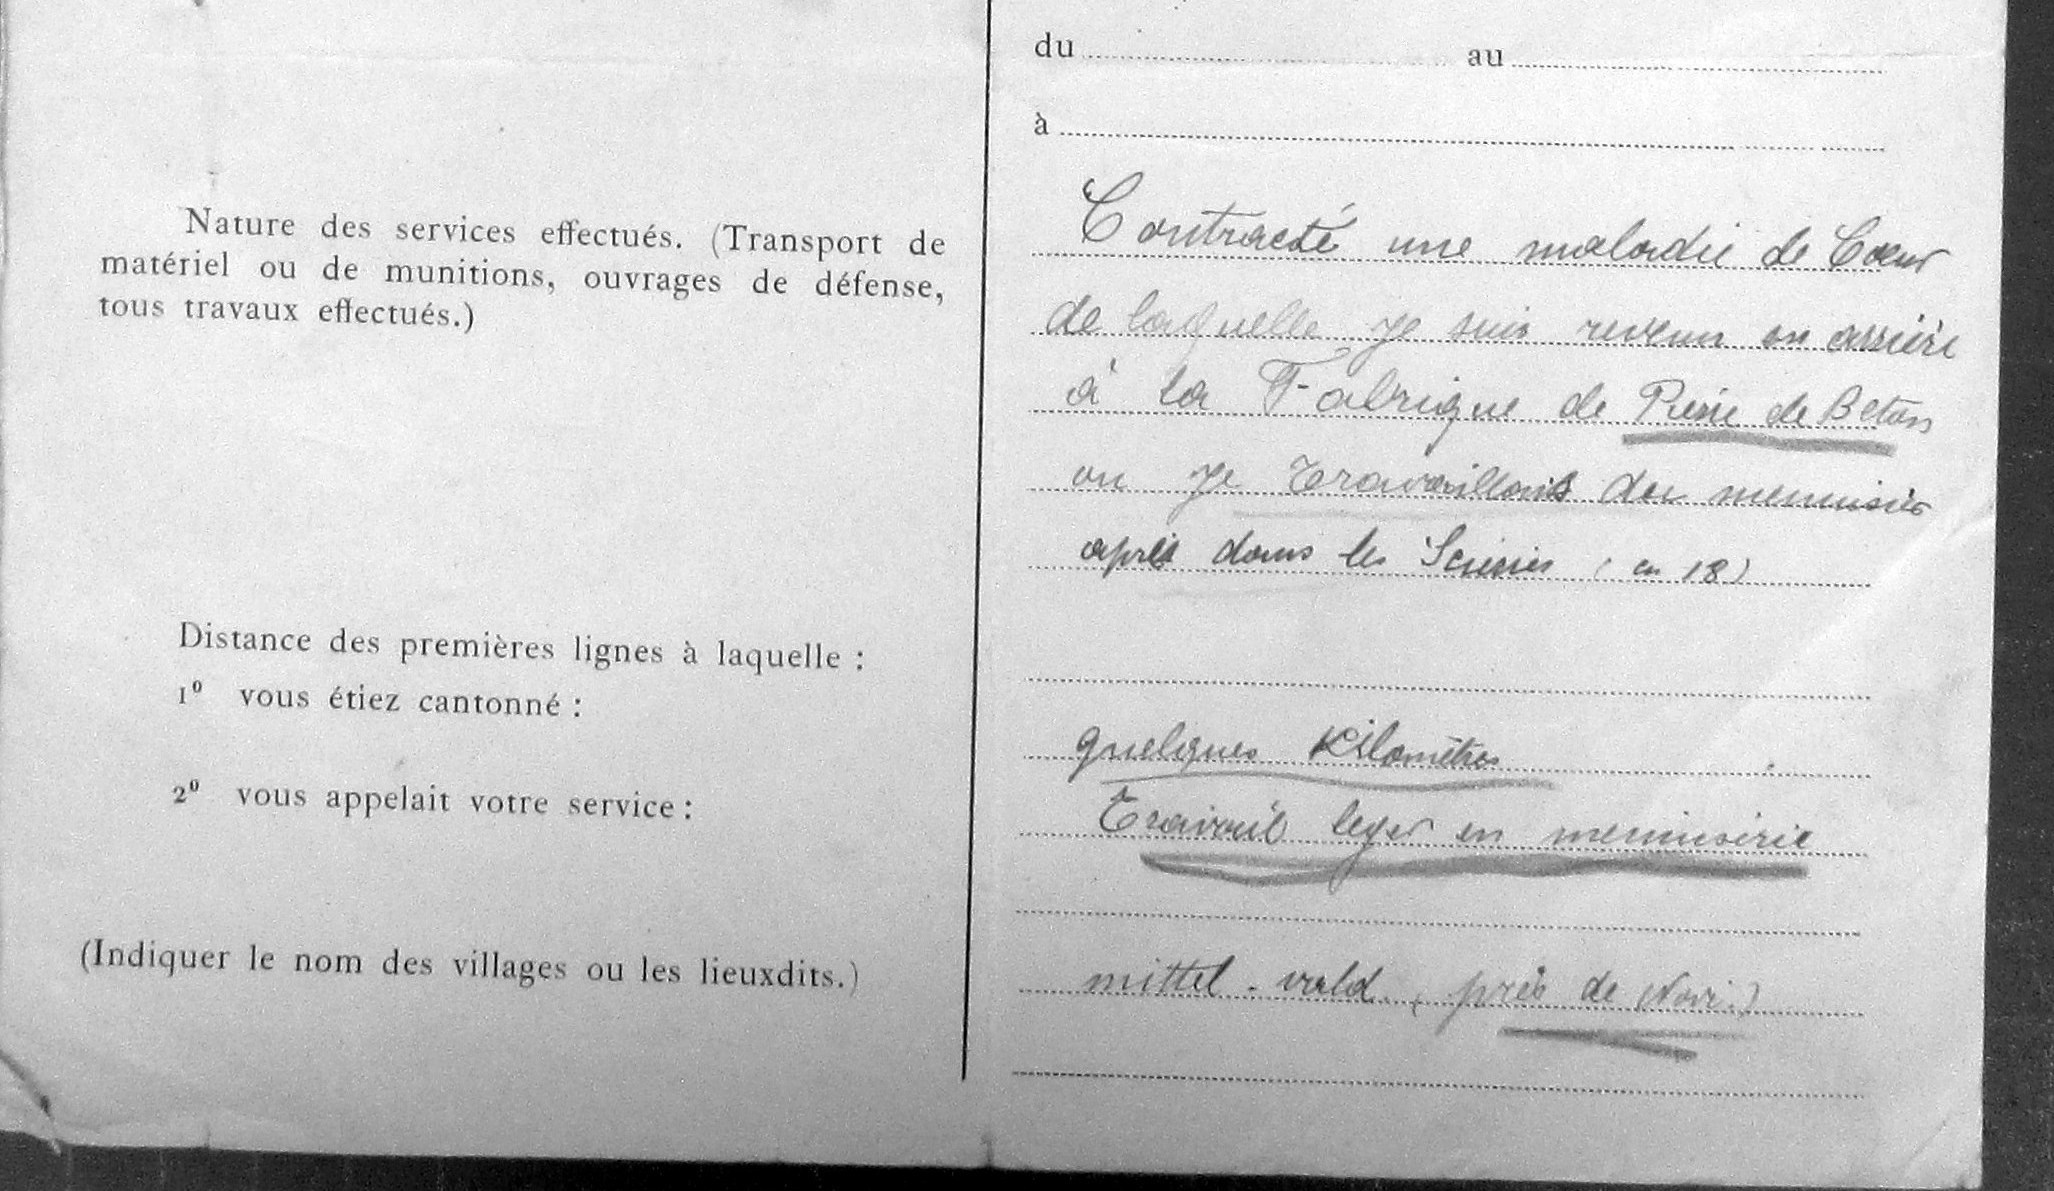 du au
à
Nature des services effectués. (Transport de
matériel ou de munitions, ouvrages de défense,
tous travaux effectués.)
Contracté une maladie de Cœur
de laquelle je suis revenu en arrière
à la Fabrique de Pierre de Beton
ou je travaillais menuisier
après dans les Scieries (en 18)
Distance des premières lignes à laquelle :
1º vous étiez cantonné :
quelques Kilomètres
2º vous appelait votre service :
Travail leger en menuiserie
(Indiquer le nom des villages ou les lieuxdits.)
mittel - wald (près de